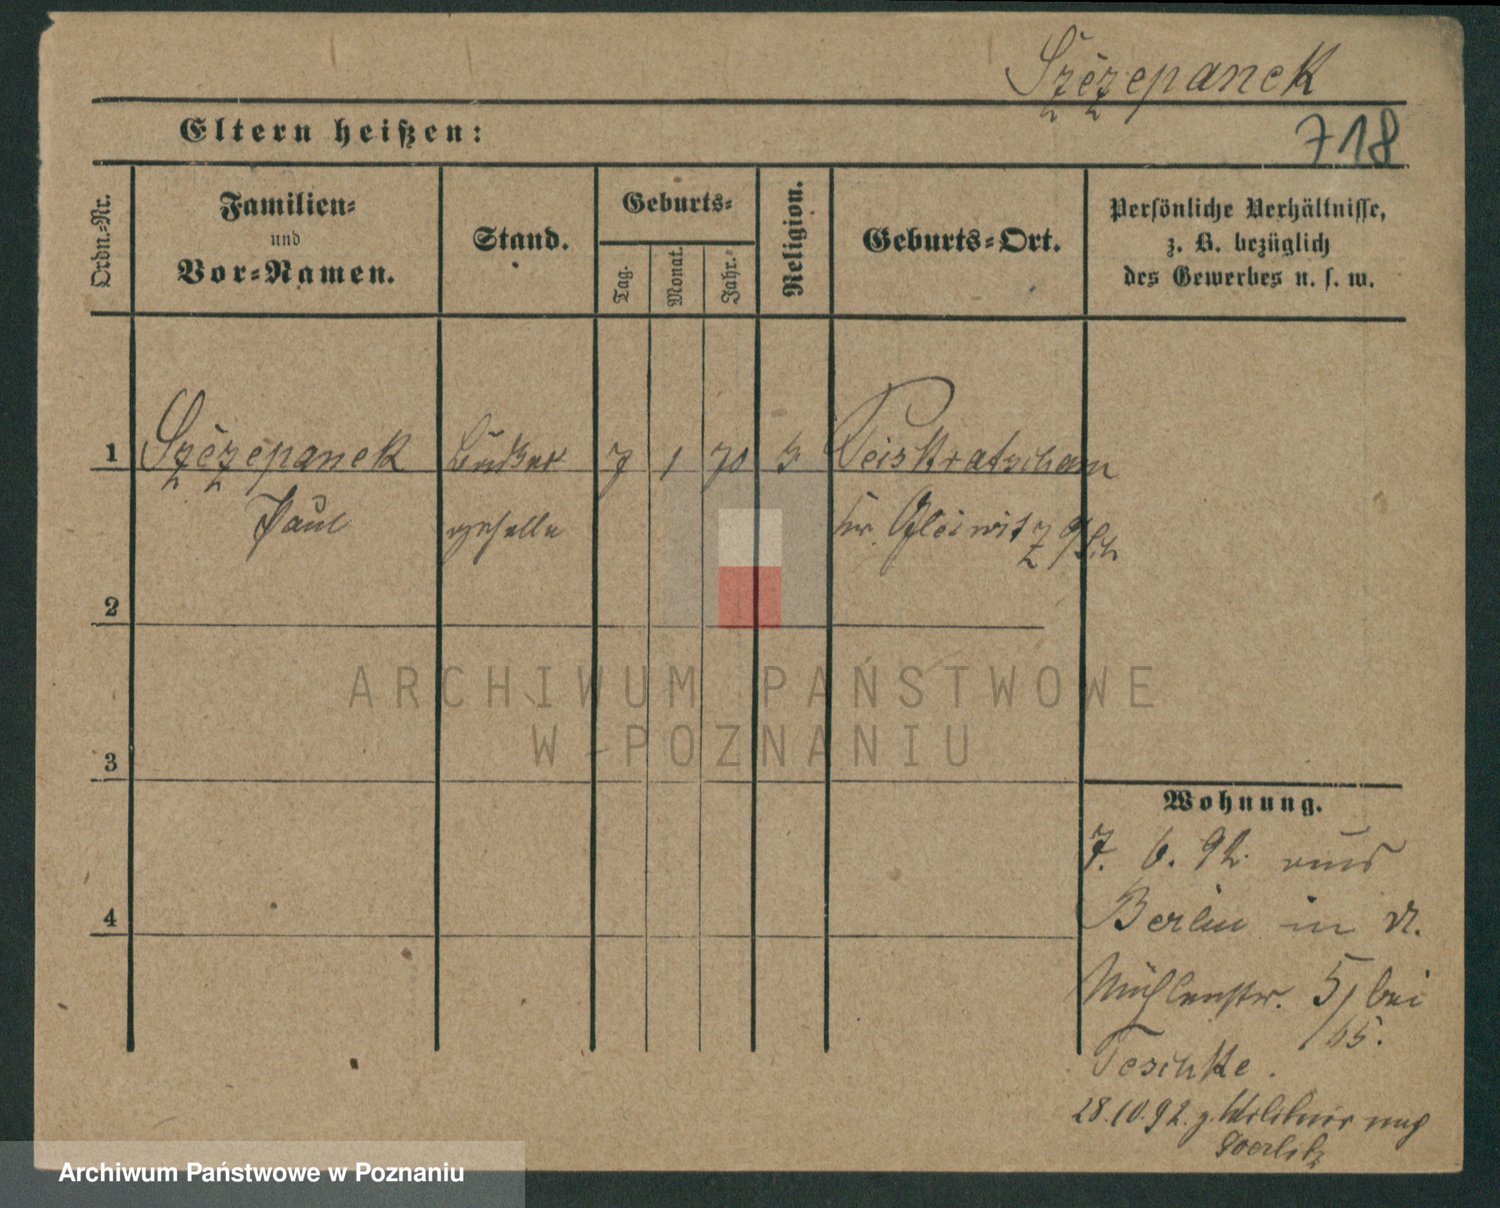 Szczepanek
718
Eltern heißen:
Ordn.-Nr.
Familien-
und
Vor-Namen.
Stand.
Geburts-
Tag.
Monat.
Jahr.
Religion.
Geburts-Ort.
Persönliche Verhältnisse,
z. B. bezüglich
des Gewerbes u. s. w.
1 Szczepanek 7 1 70 Peiskretscham
Paul geselle Kr. Gleiwitz
2
3
4
Wohnung.
7. 6. 92 aus
Berlin in
Mühlenstr. 5 bei
Teschke.
28.10.92. z. Militair nach
Goerlitz
ARCHIWUM PAŃSTWOWE
W POZNANIU
Archiwum Państwowe w Poznaniu